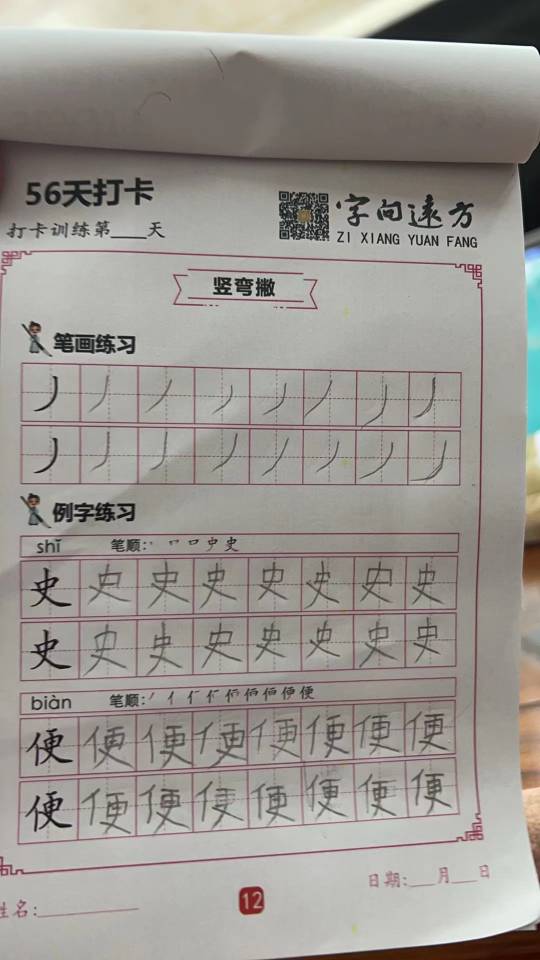 56天打卡
打卡训练第____天
字向远方
ZI XIANG YUAN FANG
竖弯撇
笔画练习
丿 丿 丿 丿 丿 丿 丿 丿
丿 丿 丿 丿 丿 丿 丿 丿
例字练习
shǐ 笔顺:
史 史 史 史 史 史 史 史
史 史 史 史 史 史 史 史
biàn 笔顺:
便 便 便 便 便 便 便 便
便 便 便 便 便 便 便 便
日期:___月___日
姓名:
12